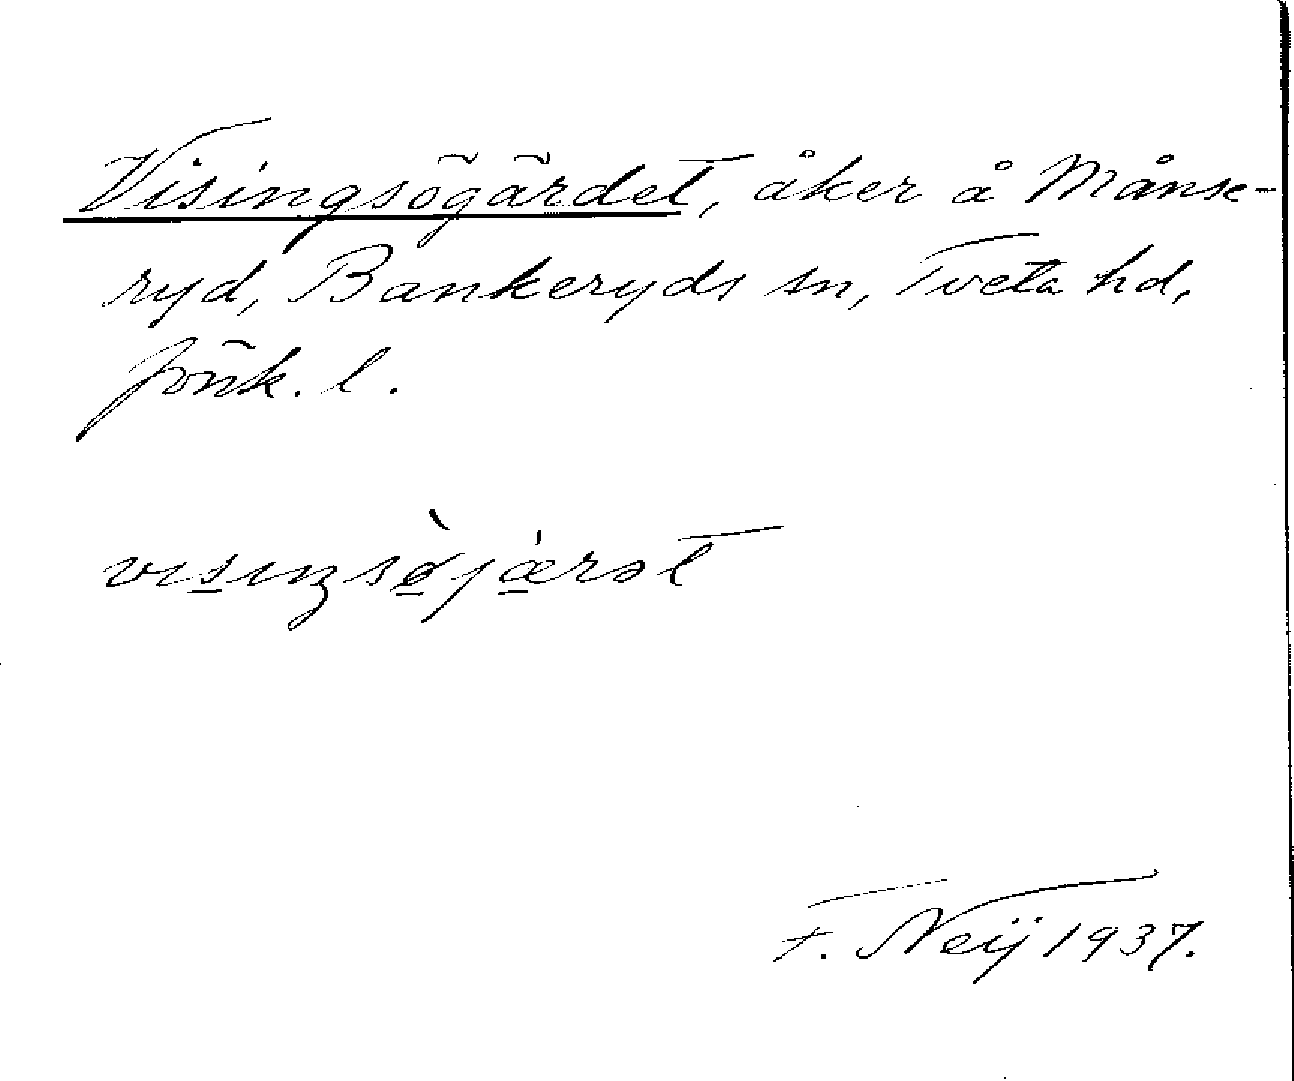 Visingsögärdet, åker å Månse-
ryd, Bankeryds sn, Tveta hd,
Jönk. l.
visiŋsø̀jæ̀rət
F. Neij 1937.